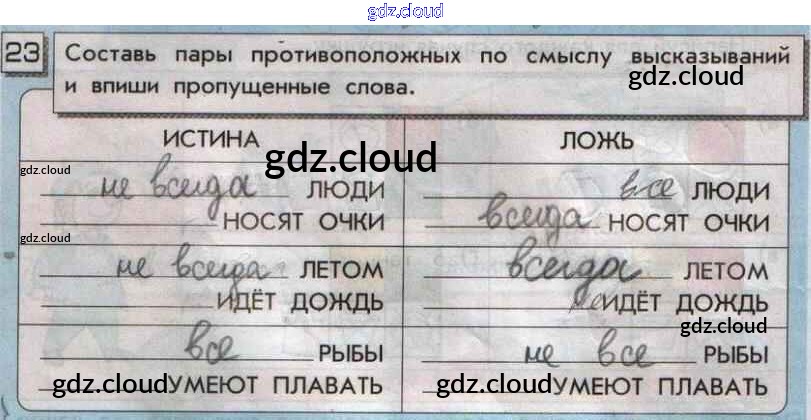 gdz.cloud
23 Составь пары противоположных по смыслу высказываний
gdz.cloud
и впиши пропущенные слова.
ИСТИНА ЛОЖЬ
gdz.cloud
gdz.cloud
не всегда ЛЮДИ все ЛЮДИ
НОСЯТ ОЧКИ всегда НОСЯТ ОЧКИ
gdz.cloud
не всегда ЛЕТОМ всегда ЛЕТОМ
ИДЁТ ДОЖДЬ ИДЁТ ДОЖДЬ
gdz.cloud
все РЫБЫ не все РЫБЫ
gdz.cloud УМЕЮТ ПЛАВАТЬ gdz.cloud УМЕЮТ ПЛАВАТЬ